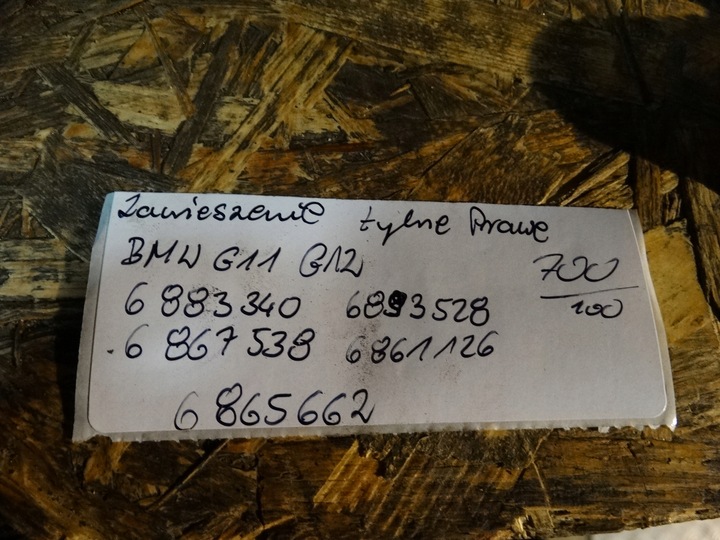 Zawieszenie tylne Prawe
BMW G11 G12
700
6 883 340 6893528
100
6 867 538 6861126
6 865 662